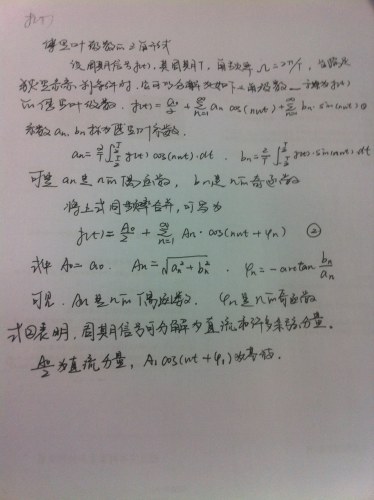 f(t)
傅里叶级数的三角形式
设周期信号f(t), 其周期T, 角频率 Ω=2π/T, 当满足
狄里赤利条件时, 它可分解为如下三角级数 — 称为f(t)
的傅里叶级数. f(t)=a₀/2+∑_{n=1}^{∞} aₙ cos(nωt)+∑_{n=1}^{∞} bₙ sin(nωt) ①
系数aₙ, bₙ称为傅里叶系数.
aₙ=2/T∫_{-T/2}^{T/2} f(t) cos(nωt)·dt . bₙ=2/T∫_{-T/2}^{T/2} f(t)·sin(nωt)dt
可见 aₙ是n的偶函数, bₙ是n的奇函数
将上式同频率合并, 可写为
f(t)=A₀/2+∑_{n=1}^{∞} Aₙ·cos(nωt+φₙ) ②
式中 A₀=a₀. Aₙ=√(aₙ²+bₙ²) . φₙ=-arctan bₙ/aₙ
可见. Aₙ是n的偶函数. φₙ是n的奇函数
式②表明, 周期信号可分解为直流和许多余弦分量.
A₀/2为直流分量, A₁cos(ωt+φ₁)为基波.